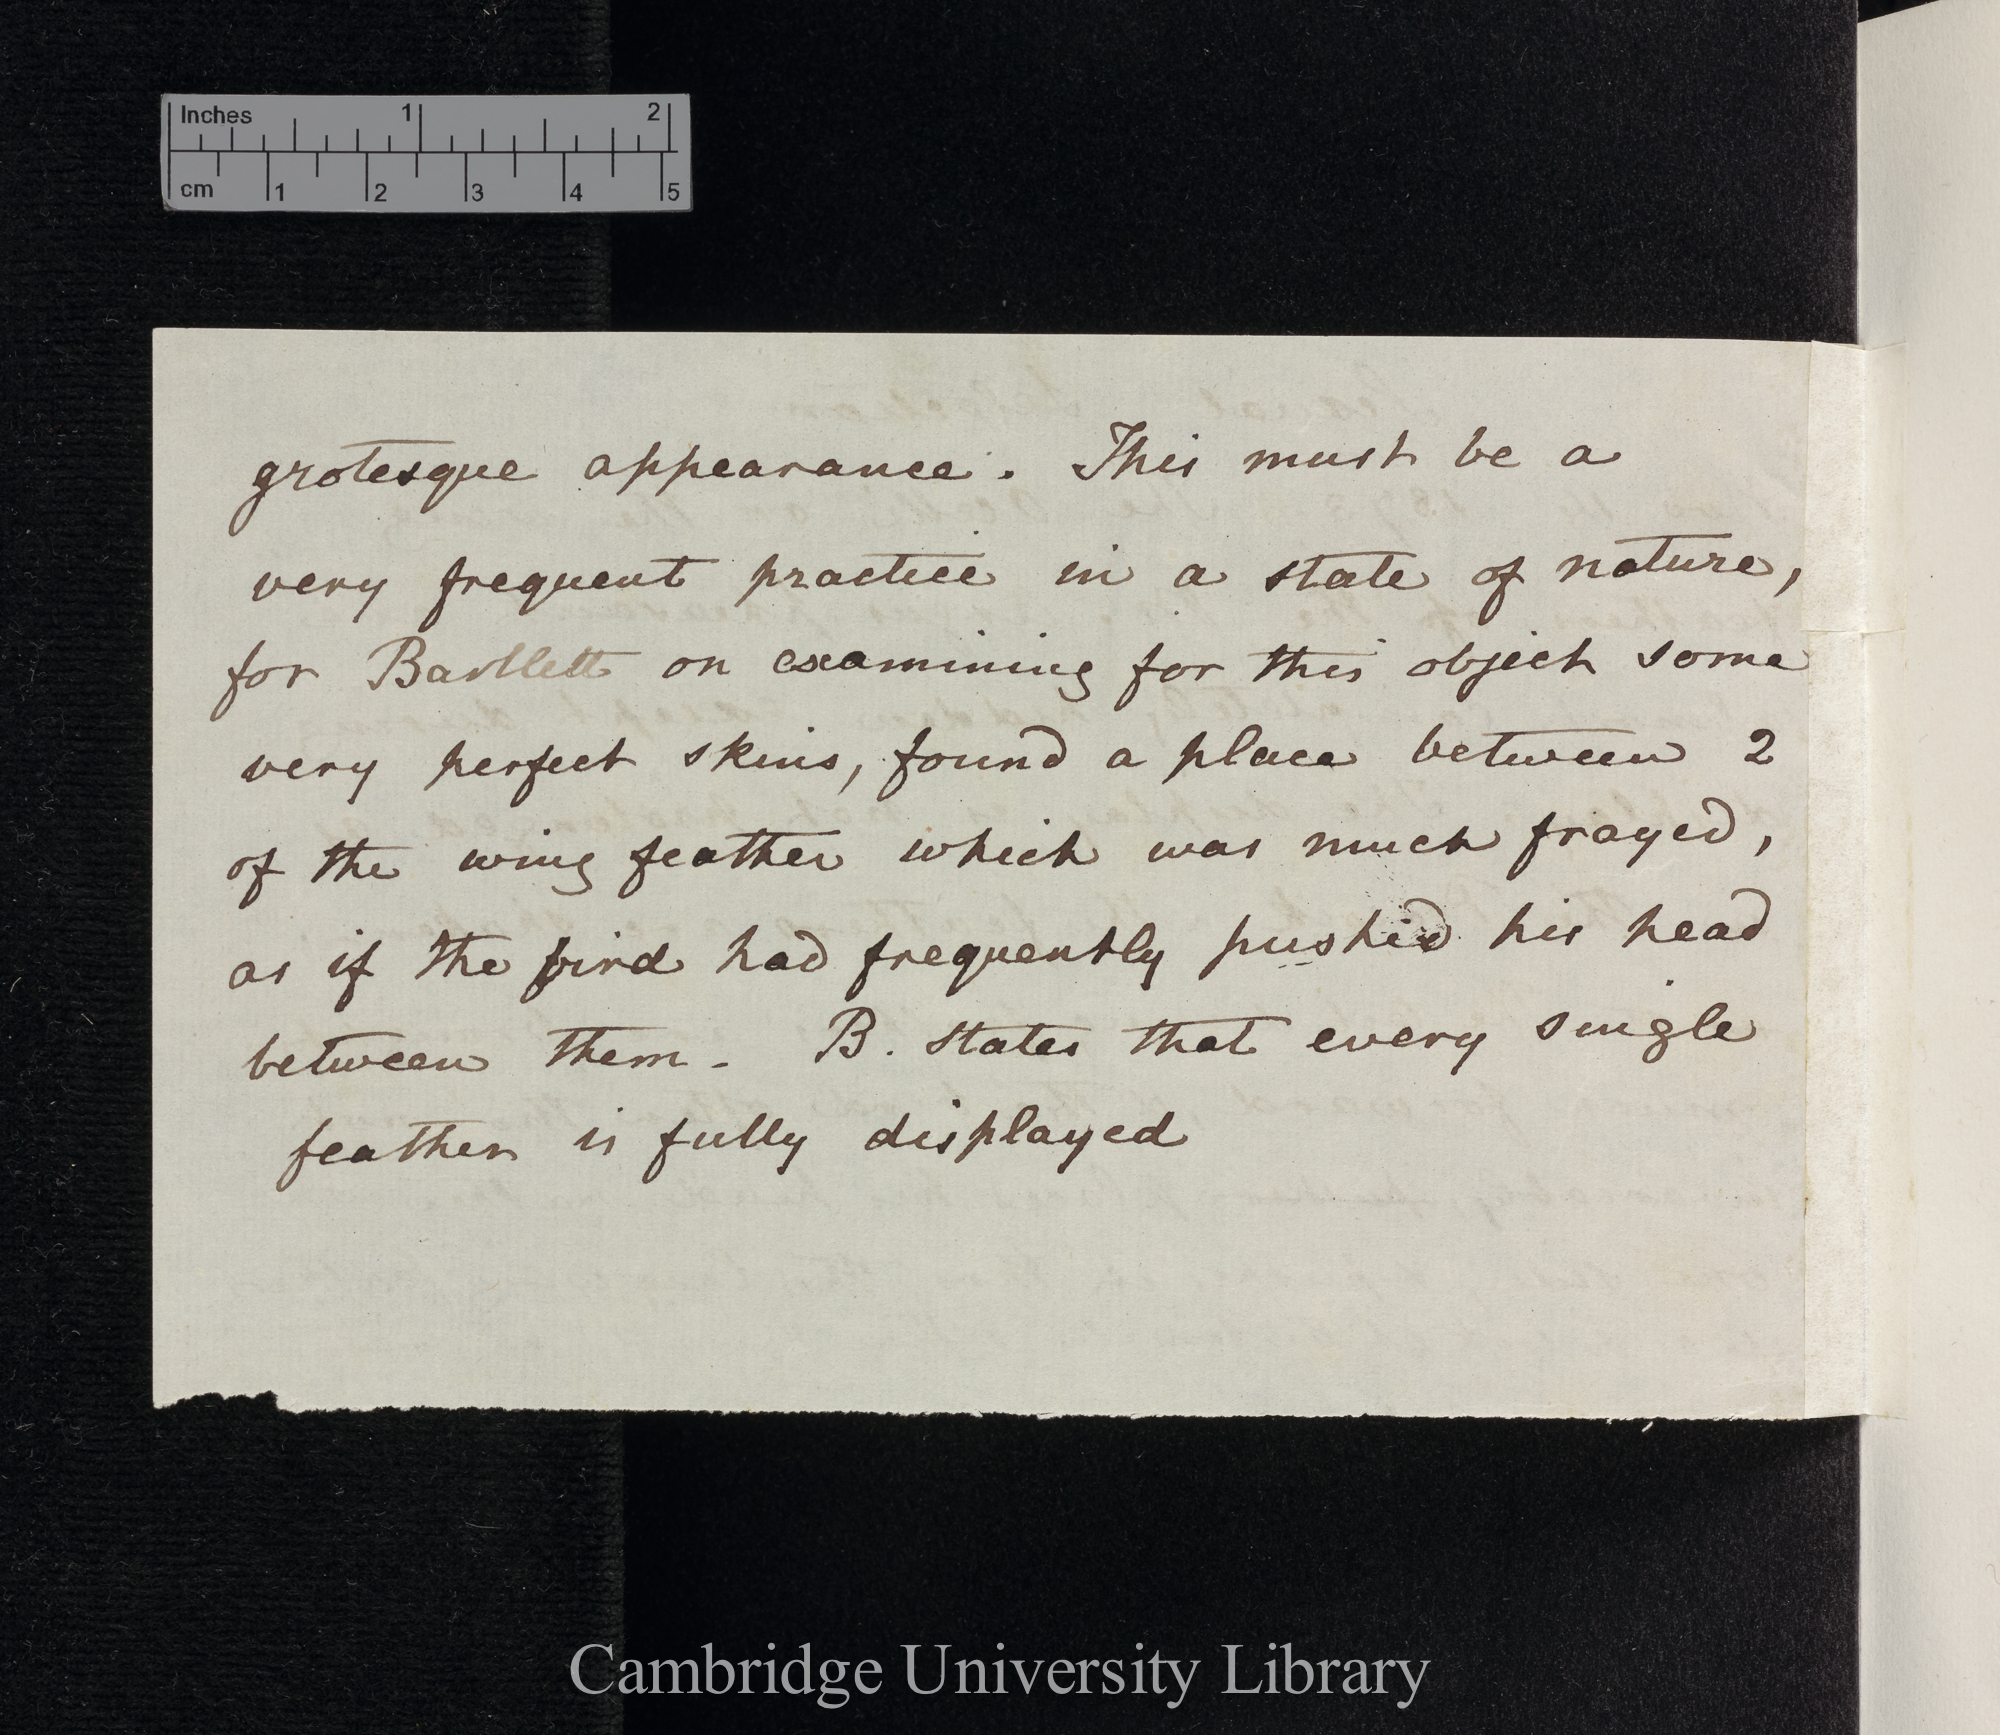 Inches 1 2
cm 1 2 3 4 5
grotesque appearance. This must be a
very frequent practice in a state of nature,
for Bartlett on examining for this object some
very perfect skins, found a place between 2
of the wing feather which was much frayed,
as if the bird had frequently pushed his head
between them. B. states that every single
feather is fully displayed
Cambridge University Library